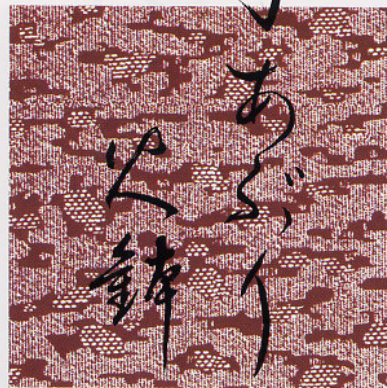 あぶり
火鉢